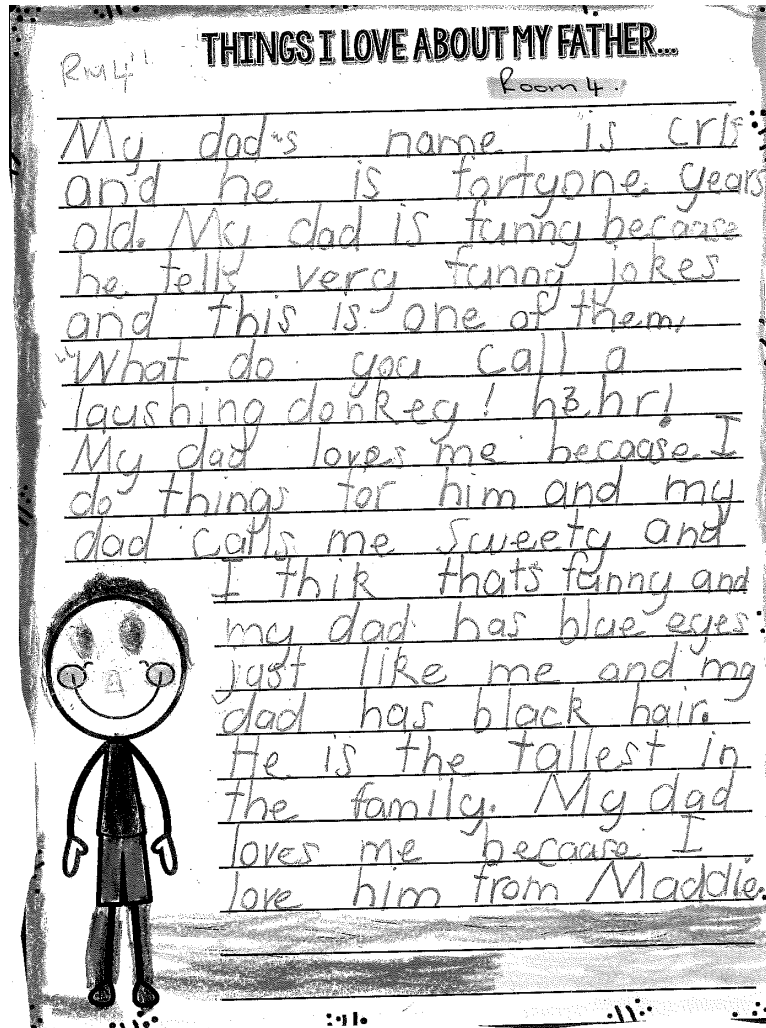 THINGS I LOVE ABOUT MY FATHER...
Rm4
Room 4.
My dad"s name is cris
and he is fortyone. years
old. My dad is funny because
he tells very funny jokes
and this is one of them,
"What do you call a
laushing donkey! h3hr!
My dad loves me because I
do things for him and my
dad calls me sweety and
I thik thats funny and
my dad has blue eyes
just like me and my
dad has black hair.
He is the tallest in
the family. My dad
loves me because I
love him from Maddie.